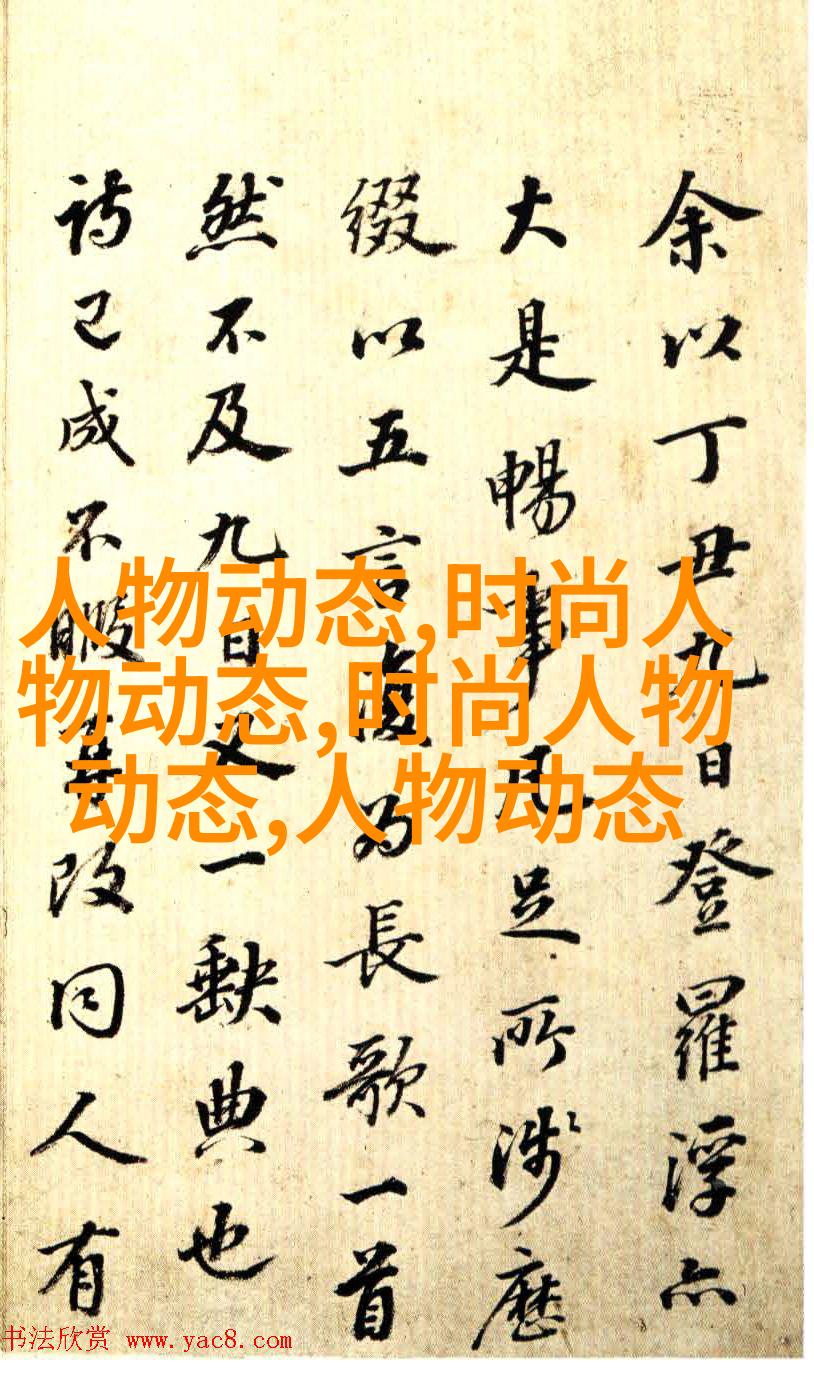 余以丁丑九日登羅浮亦
大是暢事凡足所涉歷
綴以五言復为長歌一首
然不及九日又一缺典也
詩已成不暇改同人有
人物动态,时尚人
物动态,时尚人物
动态,人物动态
书法欣赏 www.yac8.com